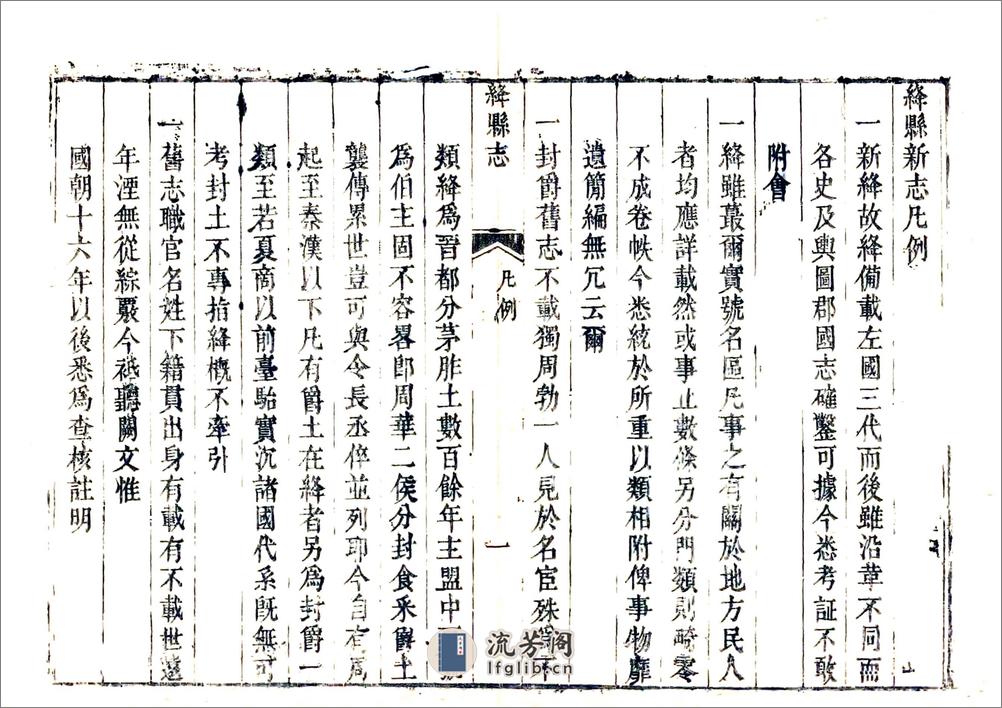 絳縣新志凡例
一新絳故絳備載左國三代而後雖沿革不同而
各史及輿圖郡國志確鑿可據今悉考証不敢
附會
一絳雖蕞爾實號名區凡事之有關於地方民人
者均應詳載然或事止數條另分門類則畸零
不成卷帙今悉統於所重以類相附俾事物靡
遺簡編無冗云爾
一封爵舊志不載獨周勃一人見於名宦殊爲不
絳縣志
凡例
一
類絳爲晉都分茅胙土數百餘年主盟中
爲伯主固不容畧卽周華二侯分封食采爵土
襲傳累世豈可與令長丞倅並列耶今自有周
起至秦漢以下凡有爵土在絳者另爲封爵一
類至若夏商以前臺駘實沉諸國代系旣無可
考封土不專指絳槪不牽引
一舊志職官名姓下籍貫出身有載有不載世遠
年湮無從綜覈今祗聽闕文惟
國朝十六年以後悉爲查核註明
流芳阁
lfglib.cn